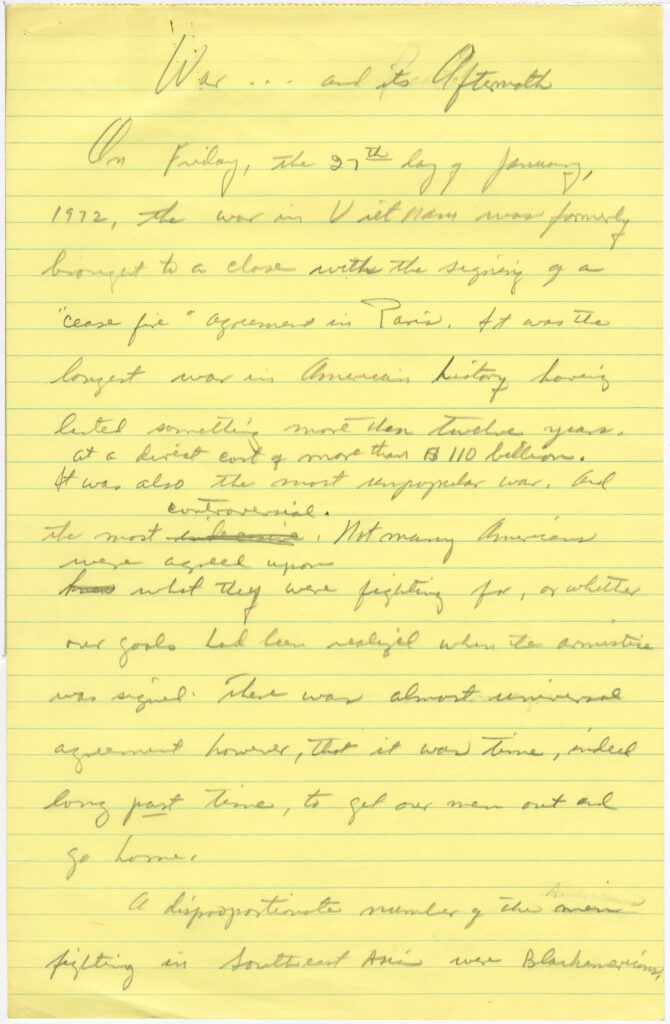 War ... and its Aftermath
On Friday, the 27th day of January,
1972, the war in Viet Nam was formerly
brought to a close with the signing of a
"cease fire" agreement in Paris. It was the
longest war in American history having
lasted something more than twelve years.
at a direct cost of more than $110 billion.
It was also the most unpopular war. And
controversial.
the most . Not many Americans
were agreed upon
what they were fighting for, or whether
our goals had been realized when the armistice
was signed. There was almost universal
agreement however, that it was time, indeed
long past time, to get our men out and
go home.
A disproportionate number of the men
fighting in Southeast Asia were Blackamericans,